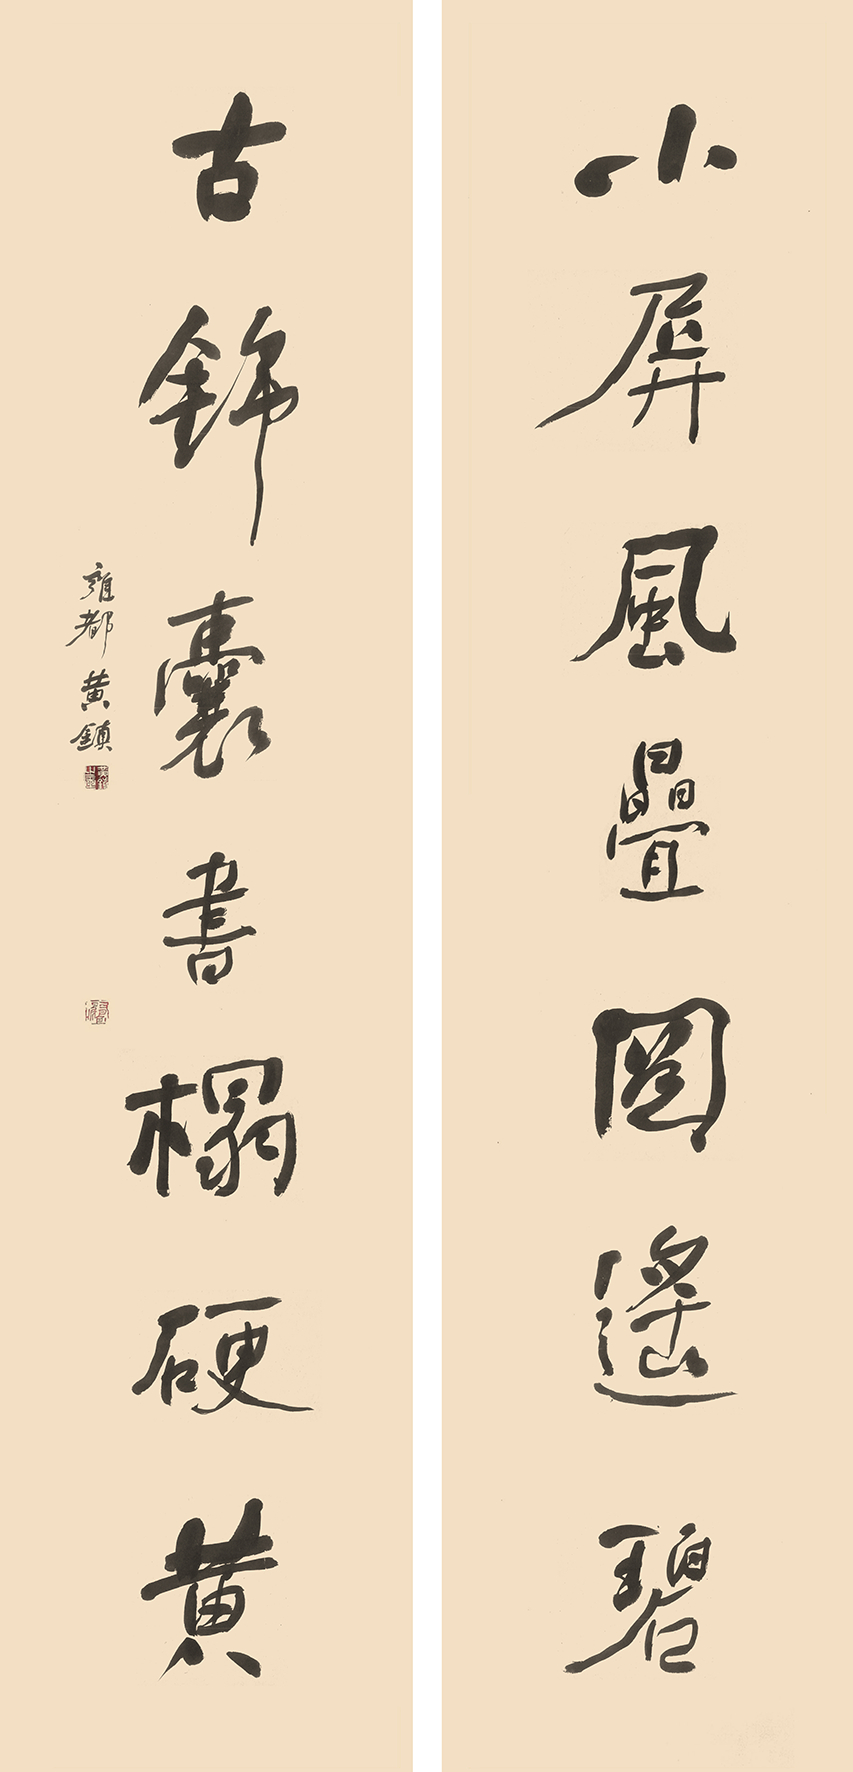 小屏風疊圖遙碧
古錦囊書榻硬黄
雍都黄鎮